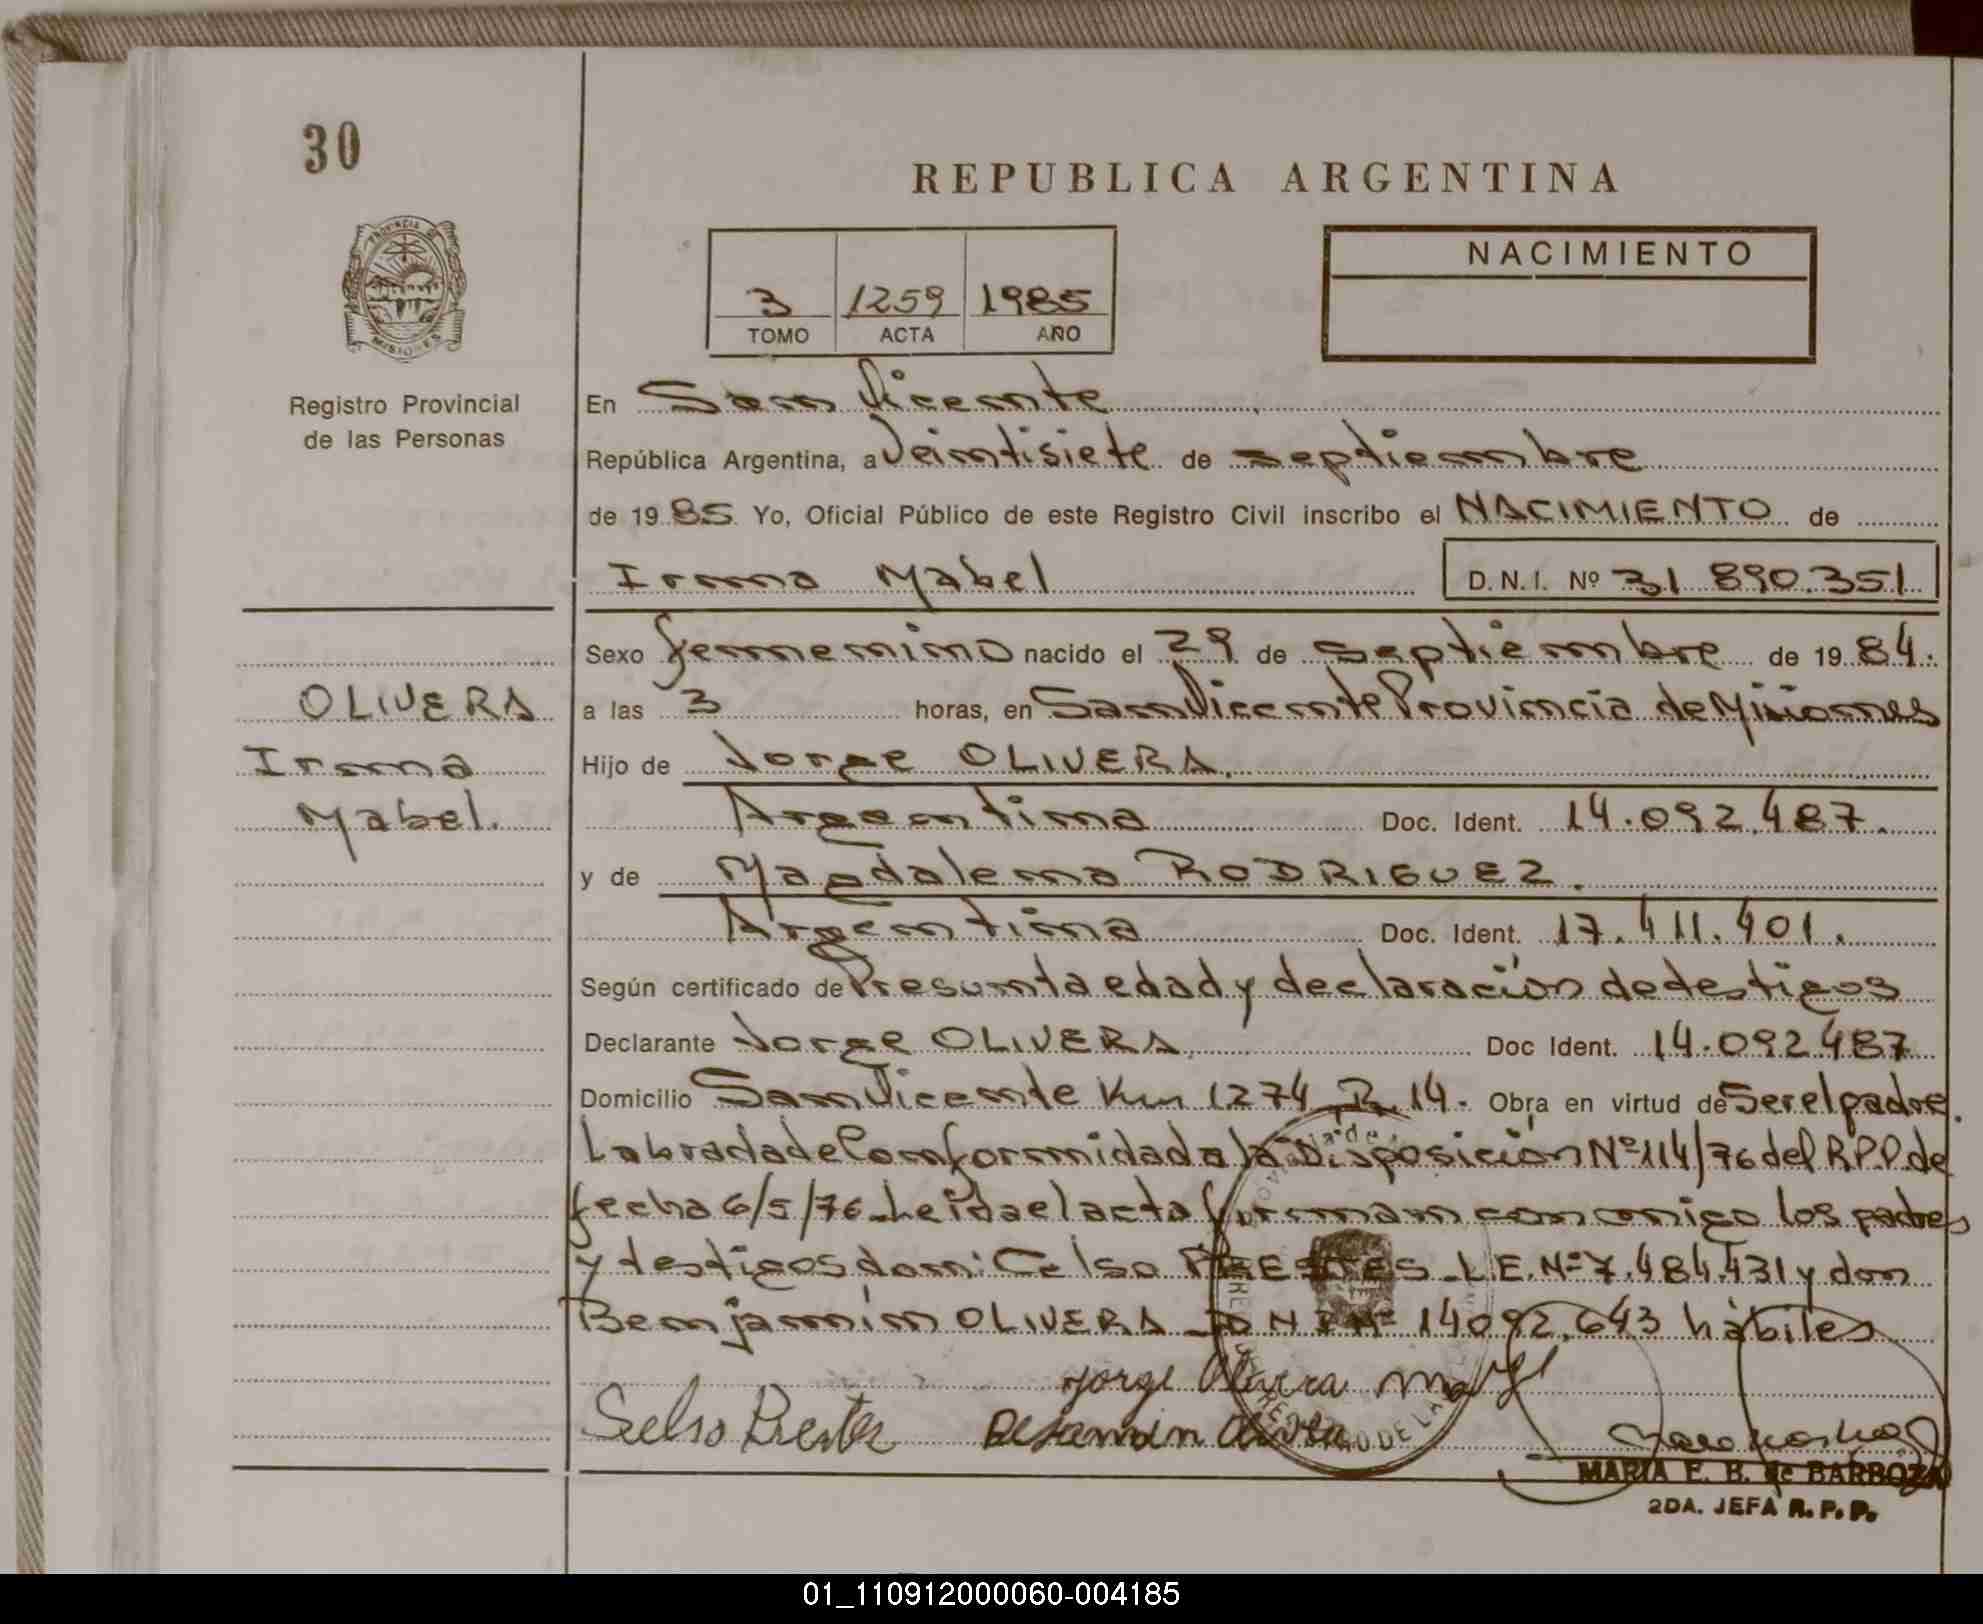 30
REPUBLICA ARGENTINA
PROVINCIA DE
MISIONES
3 1259 1985
TOMO ACTA AÑO
NACIMIENTO
Registro Provincial
de las Personas
En San Vicente
República Argentina, a Veintisiete de septiembre
de 1985 Yo, Oficial Público de este Registro Civil inscribo el NACIMIENTO de
Irma Mabel D.N.I. Nº 31 890.351
Sexo femenino nacido el 29 de septiembre de 1984.
OLIVERA
Irma
Mabel.
a las 3 horas, en San Vicente Provincia de Misiones
Hijo de Jorge OLIVERA.
Argentina Doc. Ident. 14.092.487.
y de Magdalena RODRIGUEZ.
Argentina Doc. Ident. 17.411.401.
Según certificado de Presunta edad y declaración de testigos
Declarante Jorge OLIVERA. Doc Ident. 14.092487
Domicilio San Vicente Km 1274 R. 14. Obra en virtud de Ser el padre.
Labrada de Conformidad a la Disposición Nº 114/76 del R.P.P. de
fecha 6/5/76. Leida el acta firman conmigo los padres
y testigos don: Celso PRESTES L.E. Nº 7.484.431 y don
Benjamin OLIVERA D N I Nº 14092.643 hábiles
Jorge Olivera
Selso Prestes Benjamin Olivera
MARIA E. B. de BARBOZA
2DA. JEFA R. P. P.
01_110912000060-004185